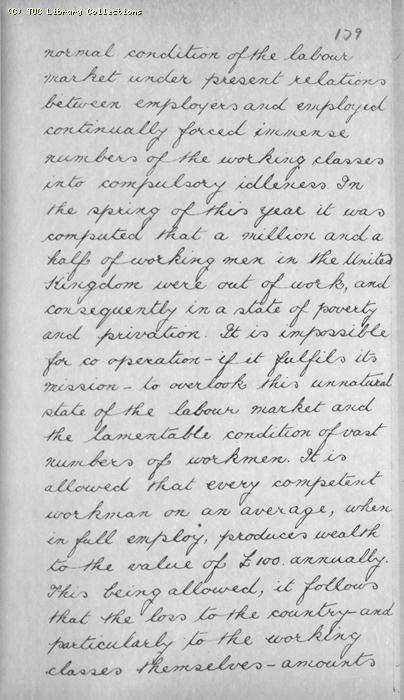 (C) TUC Library Collections
139
normal condition of the labour
market under present relations
between employers and employed
continually forced immense
numbers of the working classes
into compulsory idleness. In
the spring of this year it was
computed that a million and a
half of working men in the United
Kingdom were out of work, and
consequently in a state of poverty
and privation. It is impossible
for co operation - if it fulfils its
mission - to overlook this unnatural
state of the labour market and
the lamentable condition of vast
numbers of workmen. It is
allowed that every competent
workman on an average, when
in full employ, produces wealth
to the value of £100. annually.
This being allowed, it follows
that the loss to the country - and
particularly to the working
classes themselves - amounts